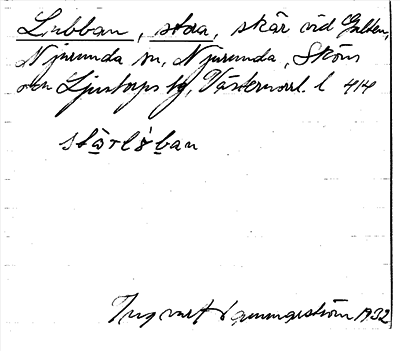 Lubban, stora, skär vid Galten,
Njurunda sn, Njurunda, Sköns
och Ljustorps tg, Västernorrl. l 414
stàrlúban
Ingvart Hammarström 1932